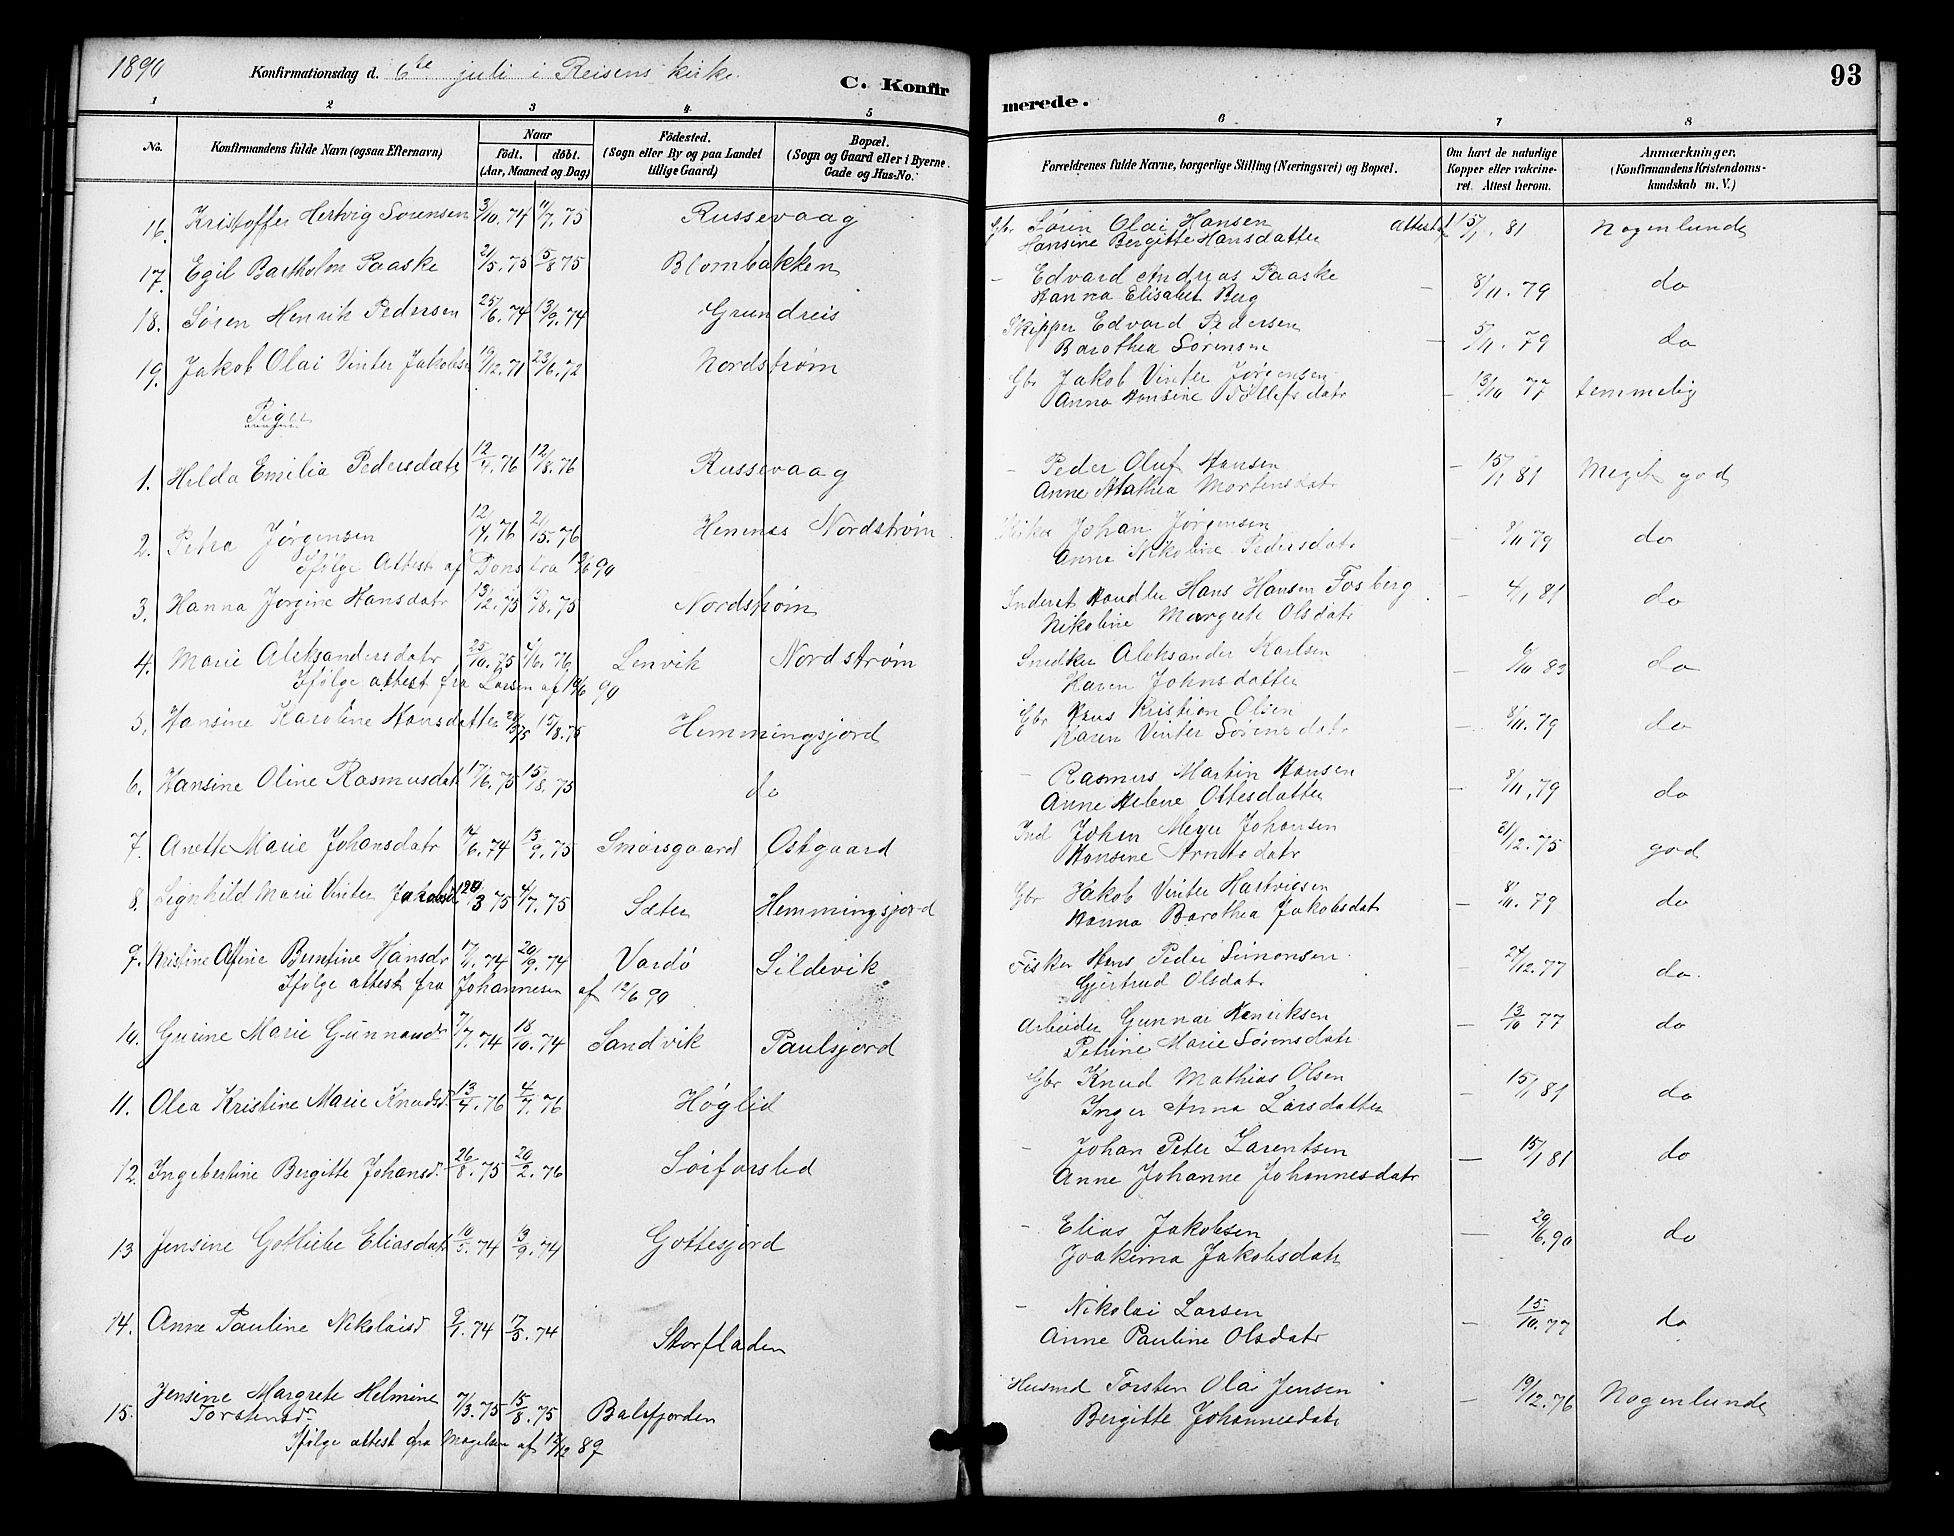 1890 Konfirmationsdag d. 6te juli i Reisens kirke
C. Konfirmerede.
93
1 2 3 4 5 6 7 8
No.
Konfirmandens fulde Navn (ogsaa Efternavn)
Naar
födt. döbt.
(Aar, Maaned og Dag)
Födested.
(Sogn eller By og paa Landet
tillige Gaard)
Bopæl.
(Sogn og Gaard eller i Byerne
Gade og Hus-No.
Forældrenes fulde Navne, borgerlige Stilling (Næringsvei) og Bopæl.
Om havt de naturlige
Kopper eller vakcine-
ret. Attest herom.
Anmærkninger.
(Konfirmandens Kristendoms-
kundskab m. V.)
16. Kristoffer Hertvig Sørensen 3/10.74 11/7.75 Russevaag Gbr Søren Olai Hansen Attest f 15/1.81 Nogenlunde
Hansine Bergitte Hansdatter
17. Egil Bartholm Paaske 21/5.75 5/8 75 Blombakken - Edvard Andreas Paaske - 8/11.79 do
Hanna Elisabet Berg
18. Søren Henrik Pedersen 25/6.74 13/9.74 Grundreis Skipper Edvard Pedersen - 5/11.79 do
Barothea Sørensen
19. Jakob Olai Vinter Jakobsen 19/12.71 23/6.72 Nordstrøm Gbr Jakob Vinter Jørgensen - 13/10 77 temmelig
Anna Hansine Tollefsdatr
Piger
1. Hilda Emilia Pedersdatr 12/4.76 12/8.76 Russevaag - Peder Oluf Hansen - 15/1 81 Meget god
Anne Mathea Mortensdatr
2. Petra Jørgensen 12/4.76 21/5.76 Hemnes Nordstrøm Johan Jørgensen - 8/11 79 do
Ifølge Attest af Anne Nikoline Pedersdatr
3. Hanna Jørgine Hansdatr 13/2.75 5/8.75 Nordstrøm Inderst Handler Hans Hansen Fosberg - 4/1 81 do
Nikoline Margrete Olsdatr
4. Marie Aleksandersdatr 25/10.75 4/6.76 Lenvik Nordstrøm Snedker Aleksander Karlsen - 9/10 83 do
Ifølge attest fra Larsen af 10/6 90 Karen Johnsdatter
5. Hansine Karoline Hansdatter 15/8.75 Hemmingsjord Gbr Hans Kristian Olsen - 8/11.79 do
Karen Vinter Sørensdatr
6. Hansine Oline Rasmusdatr 17/6.75 15/8.75 do - Rasmus Martin Hansen - 8/11.79 do
Anne Helene Ottesdatter
7. Anette Marie Johansdatr 14/6.74 13/9.75 Smørsgaard Østgaard Ind Johan Meyer Johansen 21/12.75 god
Hansine Arntsdatr
8. Signhild Marie Vinter 4/7.75 Sæter Hemmingsjord Gbr Jakob Vinter Hartvigsen - 8/11.79 do
Hanna Barothea Jakobsdatr
9. Kristine Bentine Hansdr 20/9.74 Vardö Sildevik Fisker Hans Peder Simonsen - 27/12.77 do.
Ifølge attest fra Johannesen af 12/6 90 Gjertrud Olsdatr
10. Gurine Marie Gunnarsdr 7/7.74 18/10.74 Sandvik Paulsjord Arbeider Gunnar Henriksen - 13/10 77 do
Petrine Marie Sørensdatr
11. Olea Kristine Marie Knudsd. 13/4.76 4/7.76 Høglid Gbr Knud Mathias Olsen - 15/1 81 do
Inger Anna Larsdatter
12. Ingebertine Bergitte Johansd. 26/8.75 20/2.76 Søiforslid - Johan Peter Larentsen - 15/1 81 do
Anne Johanne Johannesdatr
13 Jensine Gotliebe Eliasdatr 10/5.74 3/9.74 Gottesjord - Elias Jakobsen - 29/6.90 do
Joakima Jakobsdatr
14. Anne Pauline Nikolaisd 9/1.74 17/5.74 Storfladen - Nikolai Larsen - 15/10.77 do
Anne Pauline Olsdatr
15. Jensine Margrete Helmine 7/3.75 15/8.75 Balsfjorden Husmd Torsten Olai Jensen - 19/12.76 Nogenlunde
Torstensdr Bergitte Johannesdatr
Ifølge attest fra Magelsen af 12/12 89